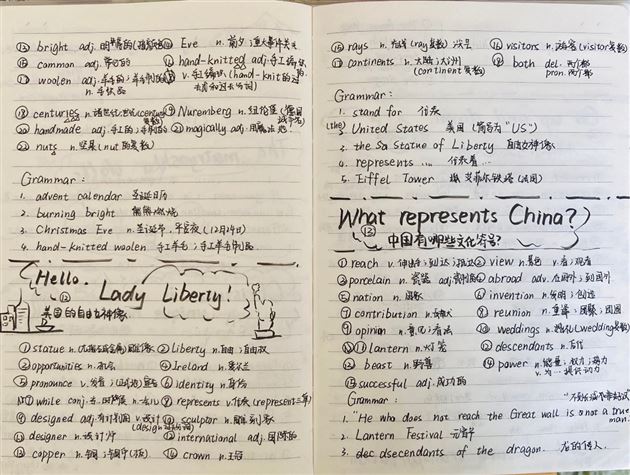 ⑬ bright adj. 明亮的 ⑭ Eve n. 前夕;重大事件关头
⑮ common adj. 常见的 ⑯ hand-knitted adj. 手工编织的
⑰ woolen adj. 羊毛的;羊毛制的 v. 手工编织 (hand-knit的过去式和过去分词)
n. 毛织品
⑱ centuries n. 诸世纪 (century复数) ⑲ Nuremberg n. 纽伦堡 (德国城市名)
⑳ handmade adj. 手工的;手制的 ㉑ magically adj. 用魔法地
㉒ nuts n. 坚果 (nut的复数)
Grammar:
1. advent calendar 圣诞日历
2. burning bright 熊熊燃烧
3. Christmas Eve n. 圣诞节,平安夜 (12月24日)
4. hand-knitted woolen 手工羊毛;手工羊毛制品
Hello,
Lady Liberty!
⑫
美国的自由女神像
① statue n. 雕像 ② liberty n. 自由;自由权
③ opportunities n. 机会 ④ Ireland n. 爱尔兰
⑤ pronounce v. 发音; ⑥ identity n. 身份
⑦ while conj. n. 一会儿 ⑧ represents v. 代表 (represent三单)
⑨ designed adj. 有计划的 v. 设计 ⑩ sculptor n. 雕刻家
⑪ designer n. 设计师 ⑫ international adj. 国际的
⑬ copper n. 铜; ⑭ crown n. 王冠
⑮ rays n. 光线 (ray复数) ⑯ visitors n. 游客 (visitor复数)
⑰ continents n. 大陆;大洲 (continent复数) ⑱ both det. 两个都
pron. 两个都
Grammar:
1. stand for 代表
2. (the) United States 美国 (简写为"US")
3. the Sa Statue of Liberty 自由女神像
4. represents ... 代表着...
5. Eiffel Tower 埃菲尔铁塔 (法国)
What represents China?
⑬
中国有哪些文化符号?
① reach v. 伸出;到达;抵达 ② view n. 景色 v. 看;观看
③ porcelain n. 瓷器 adj. 瓷制的 ④ abroad adv. 在国外;到国外
⑤ nation n. 国家 ⑥ invention n. 发明;创造
⑦ contribution n. 贡献 ⑧ reunion n. 重聚;团聚;团圆
⑨ opinion n. 意见;看法 ⑩ weddings n. 婚礼 (wedding复数)
⑪ lantern n. 灯笼 ⑫ descendants n. 后代
⑬ beast n. 野兽 ⑭ power n. 能量;权力;
v. 为...提供动力
⑮ successful adj. 成功的
Grammar: "不到长城非好汉"
1. "He who does not reach the Great wall is a not a true man.
2. Lantern Festival 元宵节
3. dec dsecendants of the dragon. 龙的传人.